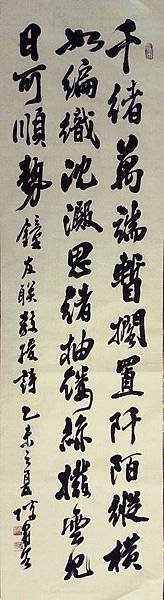 千緒萬端暫擱置阡陌縱橫
如編織沈澱思緒抽縷絲撥雲見
日可順勢 鐘友联教授詩 乙未之夏